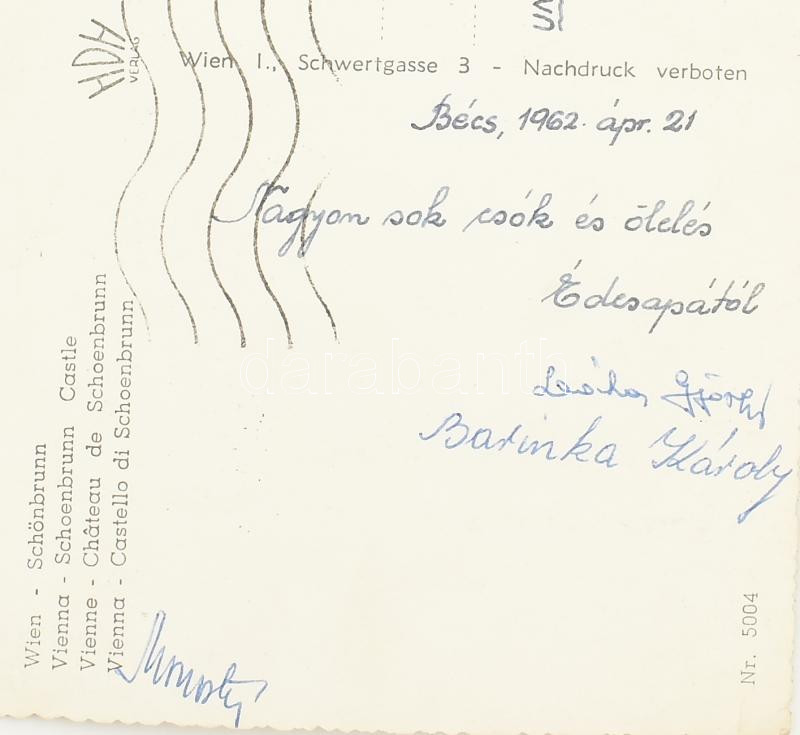 HDH
VERLAG
Wien I., Schwertgasse 3 - Nachdruck verboten
Bécs, 1962. ápr. 21
Nagyon sok csók és ölelés
Édesapától
György
Barinka Károly
Wien - Schönbrunn
Vienna - Schoenbrunn Castle
Vienne - Château de Schoenbrunn
Vienna - Castello di Schoenbrunn
Nr. 5004
darabanth